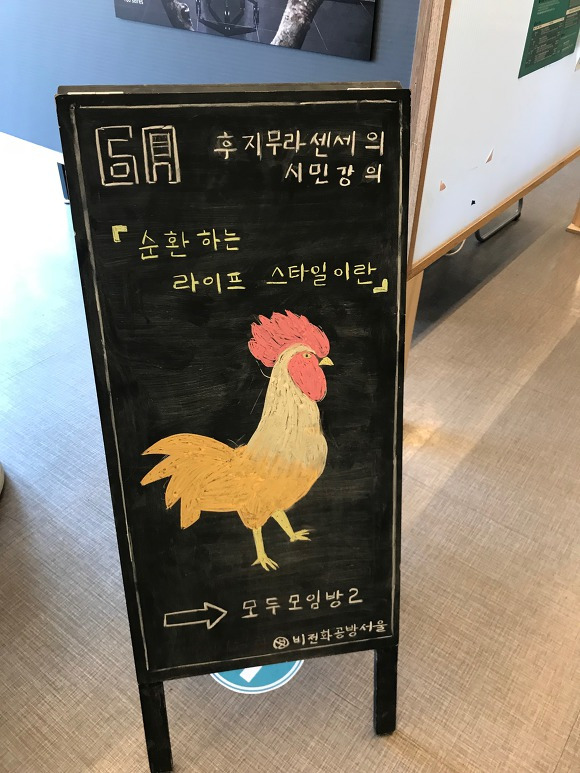 6月 후지무라센세의
시민강의
『순환하는
라이프 스타일이란』
모두모임방2
비전화공방서울